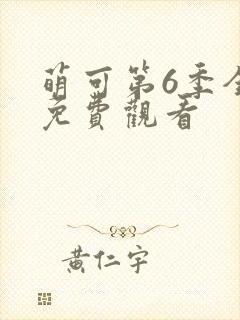 萌可第6季全
免費觀看
黃仁宇